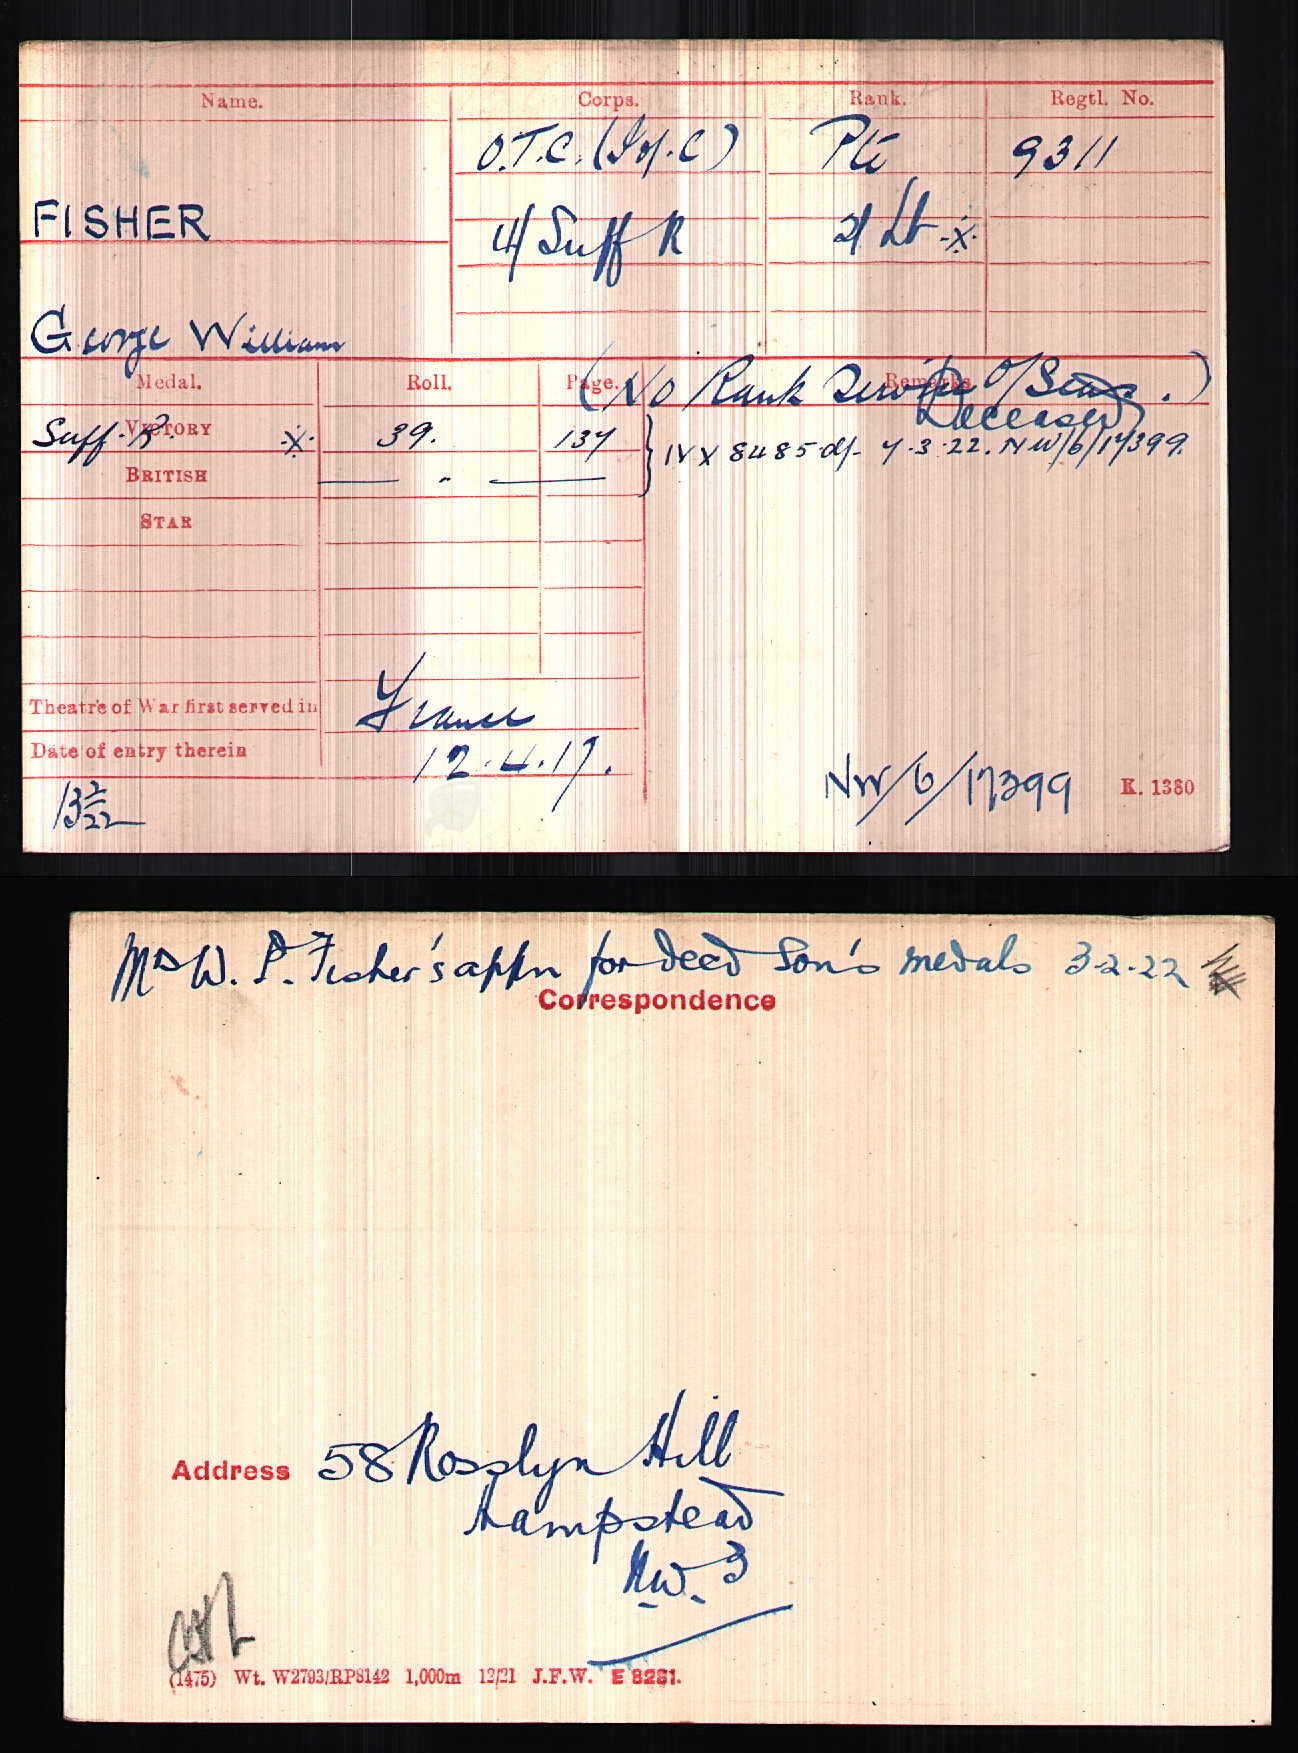 Name. Corps. Rank. Regtl. No.
O.T.C. (Inf. C) Pte 9311
FISHER 4/ Suff R 2/ Lt -X-
George William
Medal. Roll. Page. Remarks.
(No Rank Service O/Seas.)
Deceased
Suff. R. VICTORY -X- 39. 137 } IVX 8485 d/- 7.3.22. NW/6/17399.
BRITISH — " —
STAR
Theatre of War first served in France
Date of entry therein 12.4.17.
13/2/22 NW/6/17399 K. 1380
Mr W. P. Fisher's appn for decd Son's medals 3-2-22
Correspondence
Address 58 Rosslyn Hill
Hampstead
N.W. 3
(1475) Wt. W2793/RP8142 1,000m 12/21 J.F.W. E 8281.